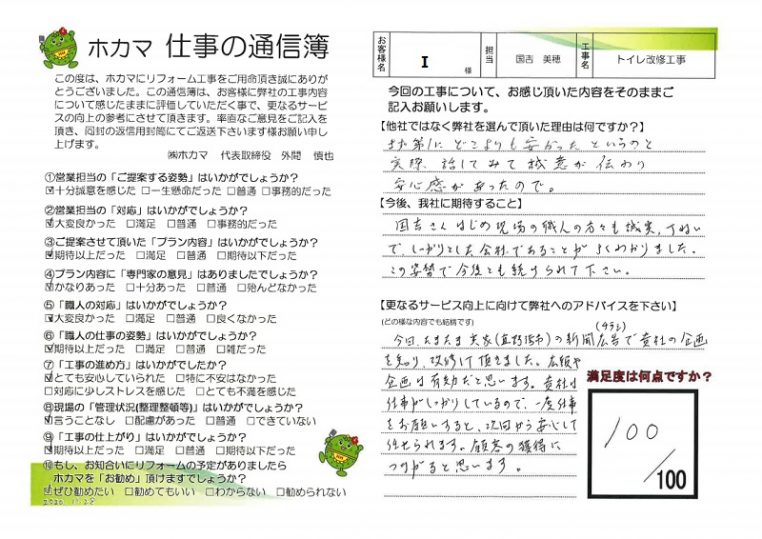 ホカマ 仕事の通信簿
この度は、ホカマにリフォーム工事をご用命頂き誠にありが
とうございました。この通信簿は、お客様に弊社の工事内容
について感じたままに評価していただく事で、更なるサービ
スの向上の参考にさせて頂きます。率直なご意見をご記入を
頂き、同封の返信用封筒にてご返送下さいます様お願い申し
上げます。
㈱ホカマ 代表取締役 外間 慎也
①営業担当の「ご提案する姿勢」はいかがでしょうか?
☑十分誠意を感じた □一生懸命だった □普通 □事務的だった
②営業担当の「対応」はいかがでしょうか?
☑大変良かった □満足 □普通 □事務的だった
③ご提案させて頂いた「プラン内容」はいかがでしょうか?
☑期待以上だった □満足 □普通 □期待以下だった
④プラン内容に「専門家の意見」はありましたでしょうか?
☑かなりあった □十分あった □普通 □殆んどなかった
⑤「職人の対応」はいかがでしょうか?
☑大変良かった □満足 □普通 □良くなかった
⑥「職人の仕事の姿勢」はいかがでしょうか?
☑期待以上だった □満足 □普通 □雑だった
⑦「工事の進め方」はいかがでしたか?
☑とても安心していられた □特に不安はなかった
□対応に少しストレスを感じた □とても不満を感じた
⑧現場の「管理状況(整理整頓等)」はいかがでしょうか?
☑言うことなし □配慮があった □普通 □できていない
⑨「工事の仕上がり」はいかがでしょうか?
☑期待以上だった □満足 □普通 □期待以下だった
⑩もし、お知合いにリフォームの予定がありましたら
ホカマを「お勧め」頂けますでしょうか?
☑ぜひ勧めたい □勧めてもいい □わからない □勧められない
お客様名 I 様 担当 国吉 美穂 工事名 トイレ改修工事
今回の工事について、お感じ頂いた内容をそのままご
記入お願いします。
【他社ではなく弊社を選んで頂いた理由は何ですか?】
まず第1に どこよりも安かった というのと
実際、話してみて 誠意が 伝わり
安心感があったので。
【今後、我社に期待すること】
国吉さんはじめ現場の職人の方々も誠実、丁ねい
で、しっかりとした会社であることが よくわかりました。
この姿勢で今後とも続けられて下さい。
【更なるサービス向上に向けて弊社へのアドバイスを下さい】
(どの様な内容でも結構です)
(チラシ)
今回、たまたま 実家の新聞広告で貴社の企画
を知り、改修して頂きました。広報や
企画は有効だと思います。貴社は
仕事がしっかりしているので、一度仕事
をお願いすると、次回から安心して
任せられます。顧客の獲得に
つながると思います。
満足度は何点ですか?
100
/100